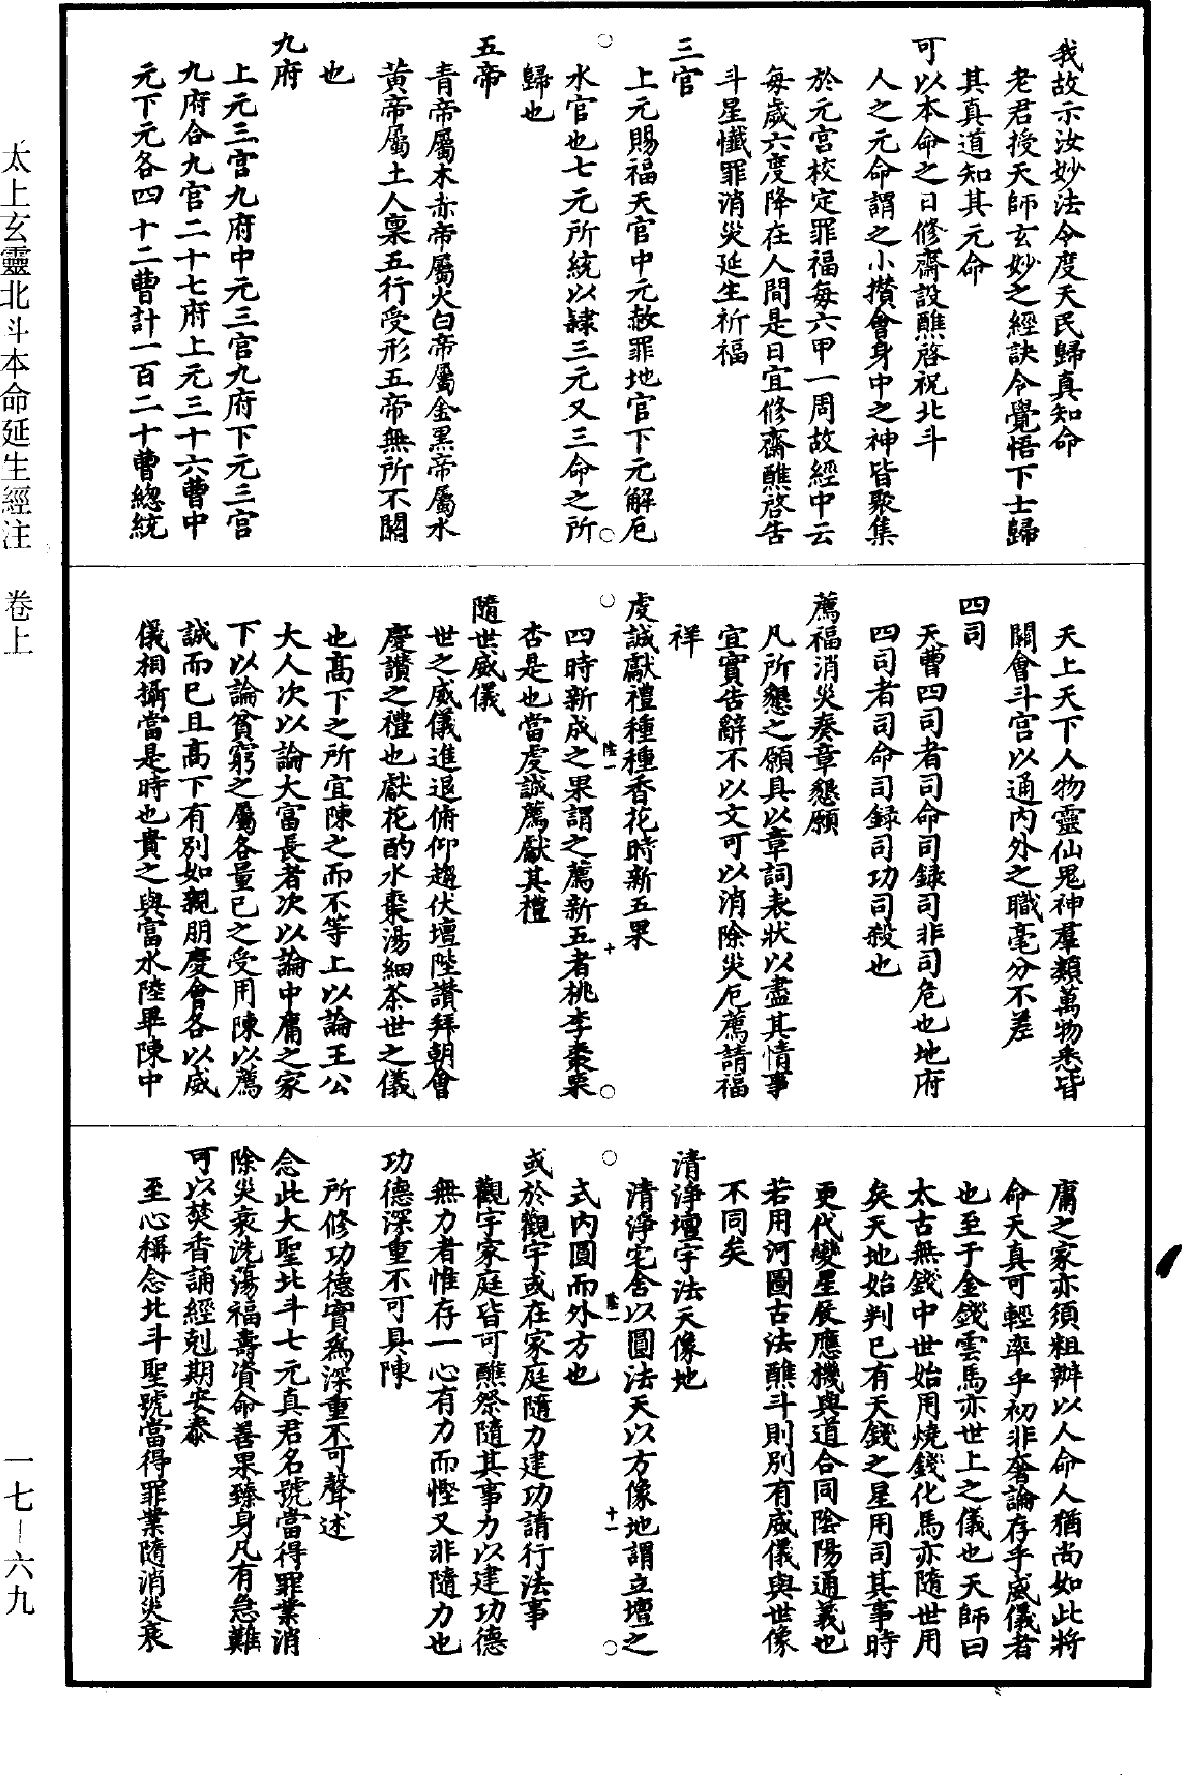 我故示汝妙法令度天民歸真知命
老君授天師玄妙之經訣令覺悟下士歸
其真道知其元命
可以本命之日修齋設醮啓祝北斗
人之元命謂之小攢會身中之神皆聚集
於元宮校定罪福每六甲一周故經中云
每歲六度降在人間是日宜修齋醮啓告
斗星懺罪消災延生祈福
三官
上元賜福天官中元赦罪地官下元解厄
水官也七元所統以隸三元又三命之所
歸也
五帝
青帝屬木赤帝屬火白帝屬金黑帝屬水
黃帝屬土人稟五行受形五帝無所不關
也
九府
上元三宮九府中元三宮九府下元三宮
九府合九宮二十七府上元三十六曹中
元下元各四十二曹計一百二十曹總統
天上天下人物靈仙鬼神羣類萬物悉皆
關會斗宮以通內外之職毫分不差
四司
天曹四司者司命司録司非司危也地府
四司者司命司録司功司殺也
薦福消災奏章懇願
凡所懇之願具以章詞表狀以盡其情事
宜實告辭不以文可以消除災厄薦請福
祥
虔誠獻禮種種香花時新五果
四時新成之果謂之薦新五者桃李棗栗
杏是也當虔誠薦獻其禮
隨世威儀
世之威儀進退俯仰趨伏壇陛讚拜朝會
慶讚之禮也獻花酌水棗湯細茶世之儀
也高下之所宜陳之而不等上以論王公
大人次以論大富長者次以論中庸之家
下以論貧窮之屬各量已之受用陳以薦
誠而已且高下有別如親朋慶會各以威
儀相攝當是時也貴之與富水陸畢陳中
庸之家亦須粗辦以人命人猶尚如此將
命天真可輕率乎初非奢論存乎威儀者
也至于金錢雲馬亦世上之儀也天師曰
太古無錢中世始用燒錢化馬亦隨世用
矣天地始判已有天錢之星用司其事時
更代變星展應機與道合同陰陽通義也
若用河圖古法醮斗則別有威儀與世像
不同矣
清淨壇宇法天像地
清淨宅舍以圓法天以方像地謂立壇之
式內圓而外方也
或於觀宇或在家庭隨力建功請行法事
觀宇家庭皆可醮祭隨其事力以建功德
無力者惟存一心有力而慳又非隨力也
功德深重不可具陳
所修功德實為深重不可聲述
念此大聖北斗七元真君名號當得罪業消
除災衰洗蕩福壽資命善果臻身凡有急難
可以焚香誦經剋期安泰
至心稱念北斗聖號當得罪業隨消災衰
太上玄靈北斗本命延生經注 卷上
一七—六九